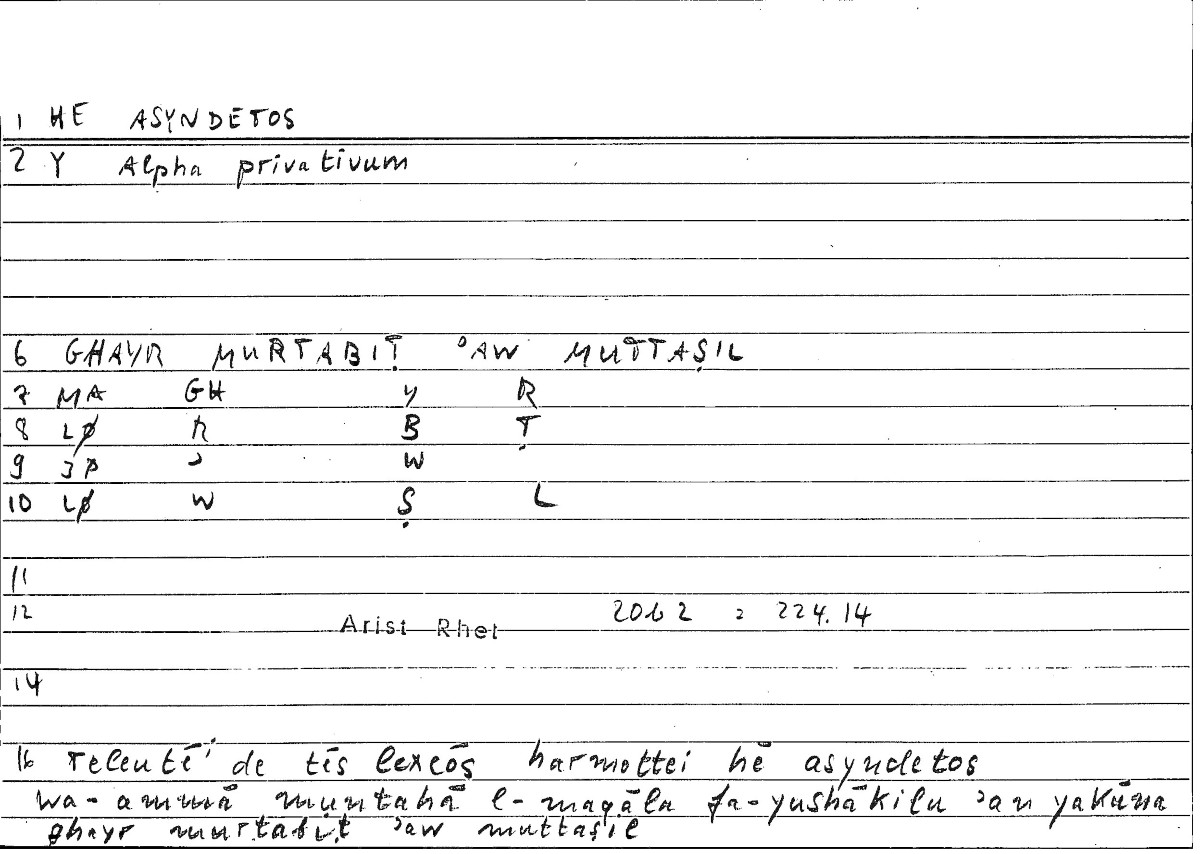 1 HE ASYNDETOS
2 Y Alpha privativum
6 GHAYR MURTABIṬ ʾAW MUTTAṢIL
7 MA GH Y R
8 LØ R B Ṭ
9 JP ʾ W
10 LØ W Ṣ L
11
12 Arist Rhet 20b2 = 224.14
14
16 Teleutē de tēs lexeōs harmottei hē asyndetos
wa-ammā muntahā l-maqāla fa-yushākilu ʾan yakūna
ghayr murtabiṭ ʾaw muttaṣil